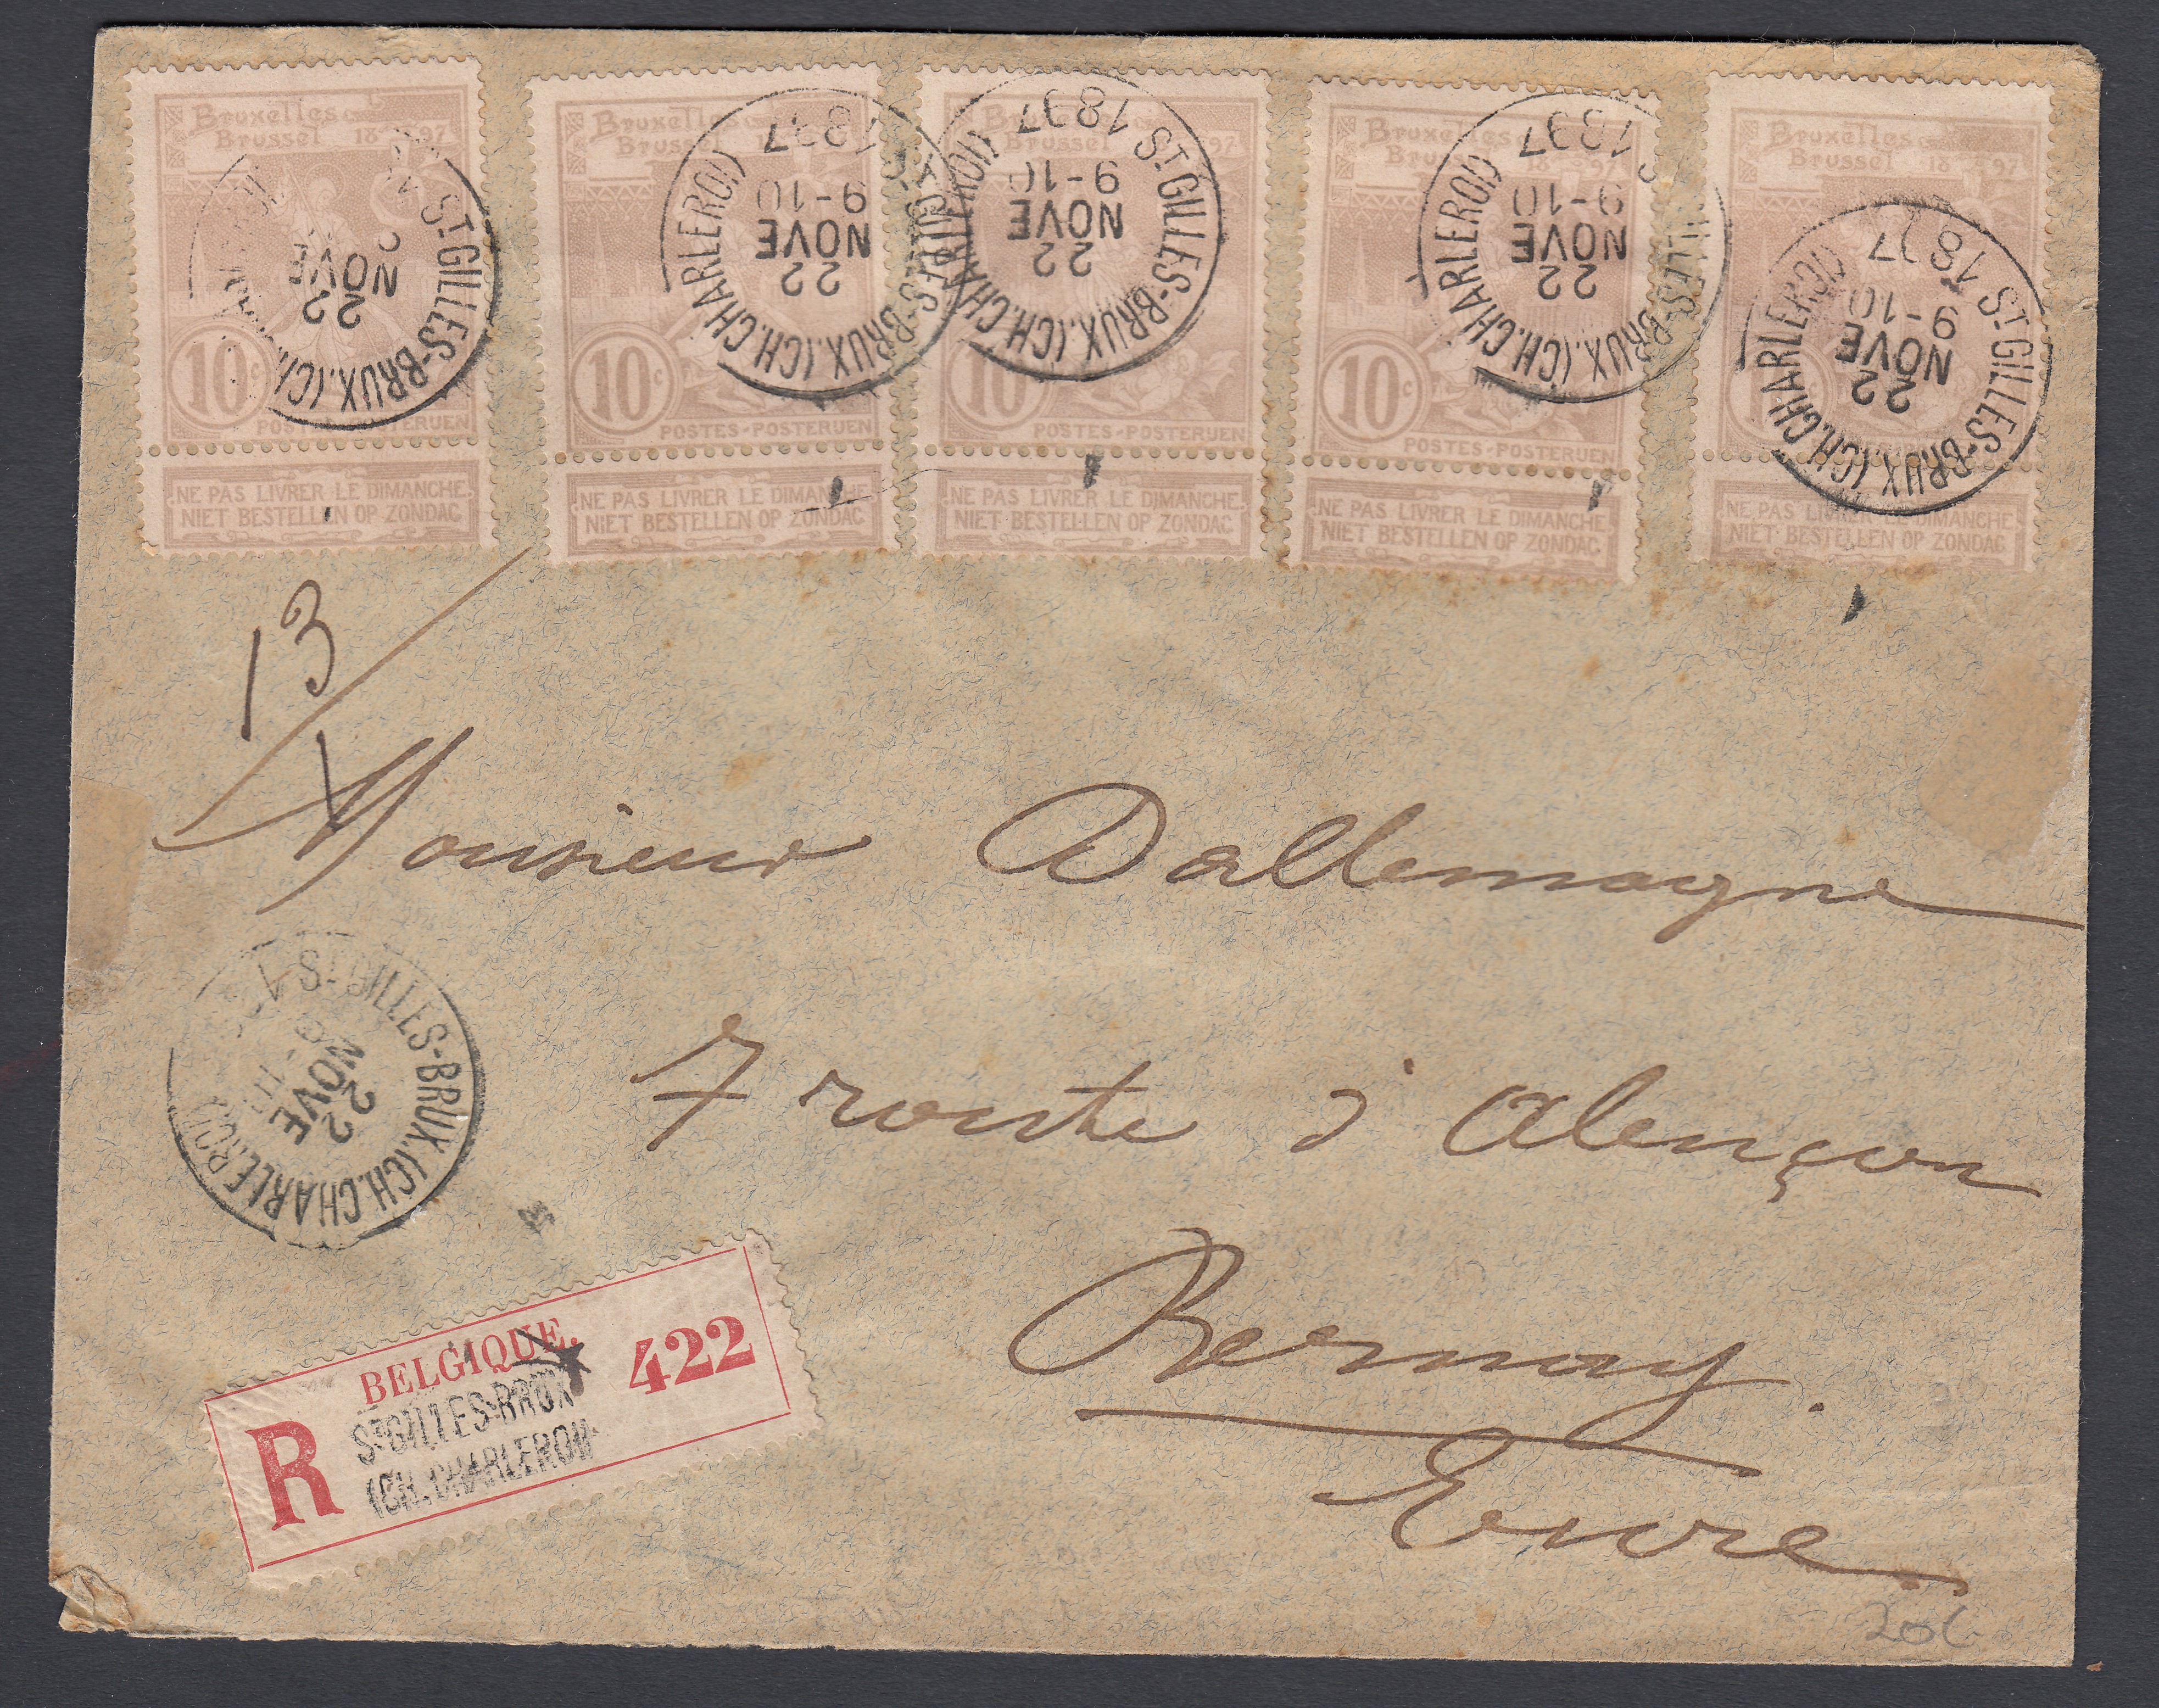 Bruxelles
Brussel 1897
10c
POSTES-POSTERIJEN
NE PAS LIVRER LE DIMANCHE
NIET BESTELLEN OP ZONDAG
ST GILLES-BRUX.(CH.
22
NOVE
Bruxelles
Brussel
10c
POSTES-POSTERIJEN
NE PAS LIVRER LE DIMANCHE
NIET BESTELLEN OP ZONDAG
ST GILLES-BRUX.(CH.CHARLEROI)
22
NOVE
9-10
1897
Bruxelles
Brussel 97
10
POSTES-POSTERIJEN
NE PAS LIVRER LE DIMANCHE
NIET BESTELLEN OP ZONDAG
ST GILLES-BRUX.(CH.CHARLEROI)
22
NOVE
9-10
1897
Bruxelles
Brussel 18
10c
POSTES-POSTERIJEN
NE PAS LIVRER LE DIMANCHE
NIET BESTELLEN OP ZONDAG
LLES-BRUX.(CH.CHARLEROI)
22
NOVE
9-10
1897
Bruxelles
Brussel 1897
10
NE PAS LIVRER LE DIMANCHE
NIET BESTELLEN OP ZONDAG
ST GILLES-BRUX.(CH.CHARLEROI)
22
NOVE
9-10
1897
13
Monsieur Dallemagne
7 route d'Alençon
Bernay.
Eure
ST GILLES-BRUX.(CH.CHARLEROI)
22
NOVE
BELGIQUE.
R
ST GILLES-BRUX
(CH.CHARLEROI)
422